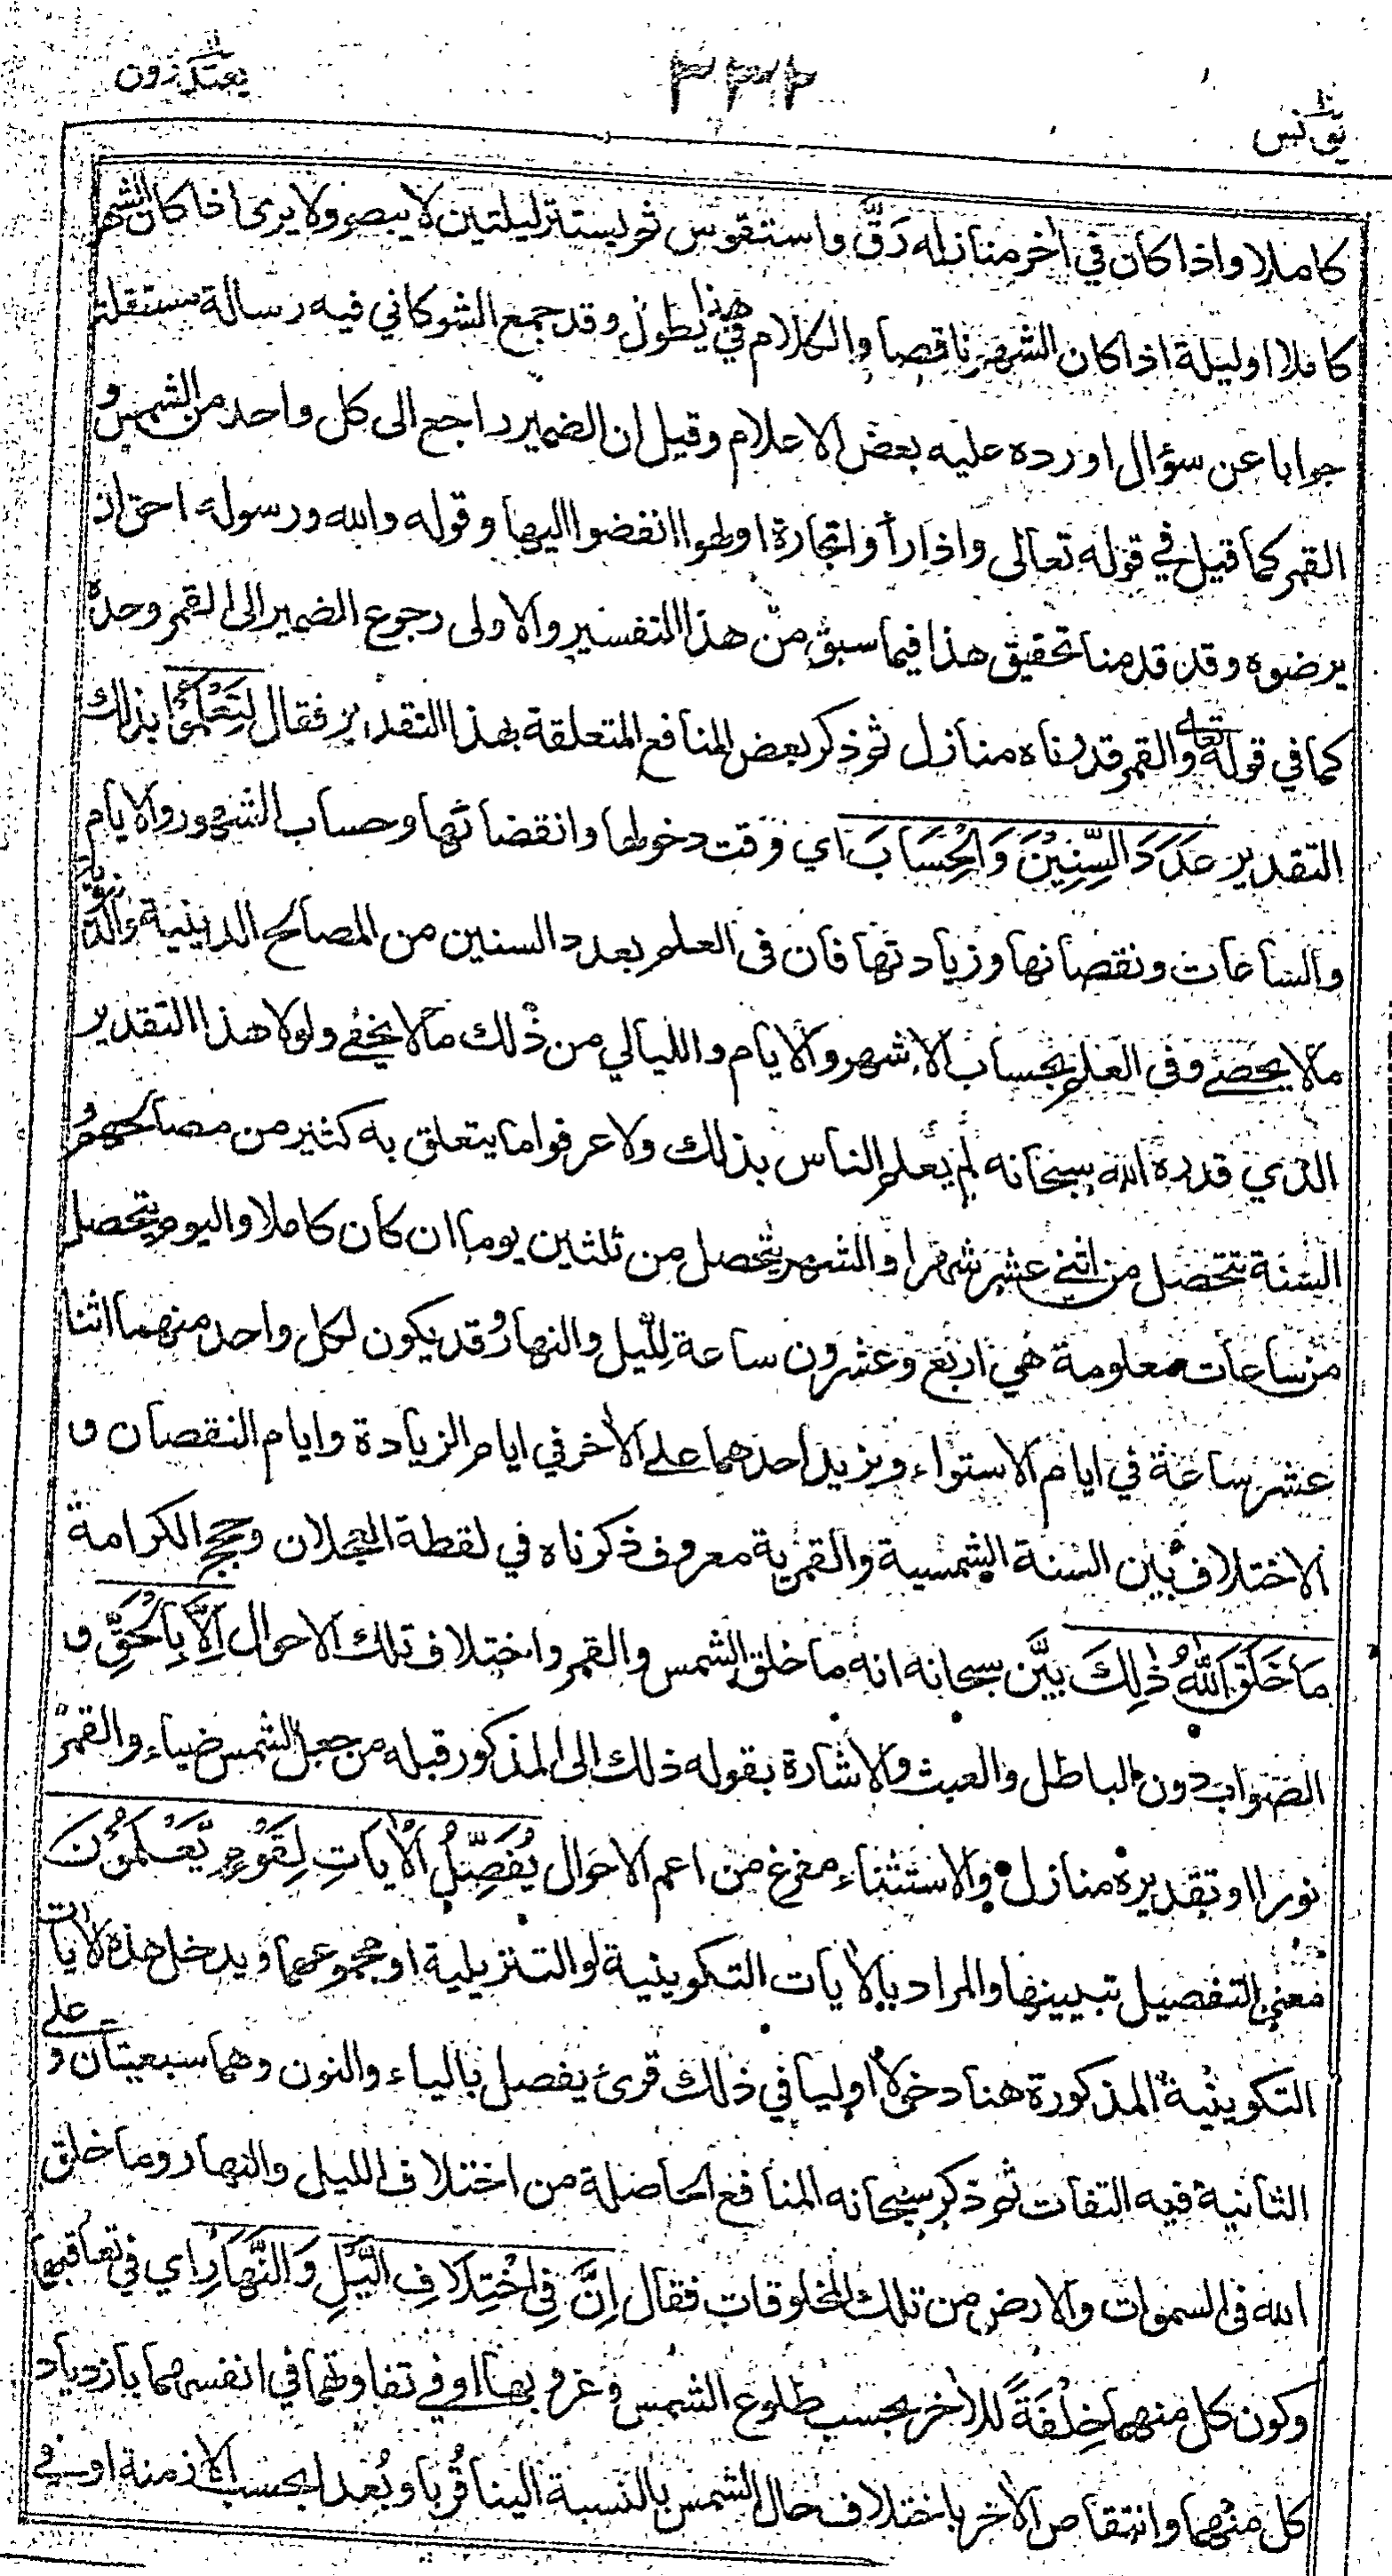 يعتذرون ١١
٣٣٢
يونس ١٠
كاملا واذا كان في اٰخر منازله رقّ واستقوس ثم يستتر ليلتين لا يبصر ولا يرى اذا كان الشهر
كاملا او ليلة اذا كان الشهر ناقصا والكلام في هذا يطول وقد جمع الشوكاني فيه رسالة مستقلة
جوابا عن سؤال اورده عليه بعض الاعلام وقيل ان الضمير راجع الى كل واحد من الشمس و
القمر كما قيل في قوله تعالى واذا رأوا تجارة او لهوا انفضوا اليها وقوله والله ورسوله احق ان
يرضوه وقد قدمنا تحقيق هذا فيما سبق من هذا التفسير والاولى رجوع الضمير الى القمر وحده
كما في قوله تعالى والقمر قدرناه منازل ثم ذكر بعض المنافع المتعلقة بهذا التقدير فقال لِتَعْلَمُوْا بذلك
التقدير عَدَدَ السِّنِيْنَ وَالْحِسَابَ اي وقت دخولها وانقضائها وحساب الشهور والايام
والساعات ونقصانها وزيادتها فان فى العلم بعدد السنين من المصالح الدينية والدنيوية
مالا يحصى وفى العلم بحساب الاشهر والايام والليالي من ذٰلك مالا يخفى ولولا هذا التقدير
الذي قدره الله سبحانه لم يعلم الناس بذلك ولا عرفوا ما يتعلق به كثير من مصالحهم و
السنة تتحصل من اثنى عشر شهرا والشهر يتحصل من ثلثين يوما ان كان كاملا واليوم يتحصل
من ساعات معلومة هي اربع وعشرون ساعة لليل والنهار وقد يكون لكل واحد منهما اثنا
عشر ساعة في ايام الاستواء ويزيد احدهما على الاٰخر في ايام الزيادة وايام النقصان و
الاختلاف بين السنة الشمسية والقمرية معروف ذكرناه في لقطة العجلان وحجج الكرامة
مَا خَلَقَ اللهُ ذٰلِكَ بيَّن سبحانه انه ما خلق الشمس والقمر واختلاف تلك الاحوال اِلَّا بِالْحَقِّ و
الصواب دون الباطل والعبث والاشارة بقوله ذلك الى المذكور قبله من جعل الشمس ضياء والقمر
نورا وتقديره منازل والاستثناء مفرغ من اعم الاحوال يُفَصِّلُ الْاٰيَاتِ لِقَوْمٍ يَّعْلَمُوْنَ
معنى التفصيل تبيينها والمراد بالاٰيات التكوينية او التنزيلية او مجموعهما ويدخل هذه الاٰيات
التكوينية المذكورة هنا دخولا اوليا في ذلك قرئ يفصل بالياء والنون وهما سبعيتان و على
الثانية فيه التفات ثم ذكر سبحانه المنافع الحاصلة من اختلاف الليل والنهار وما خلق
الله فى السموات والارض من تلك المخلوقات فقال اِنَّ فِى اخْتِلَافِ الَّيْلِ وَالنَّهَارِ اي في تعاقبهما
وكون كل منهما خِلْفَةً للاٰخر بحسب طلوع الشمس وغروبها او في تفاوتهما في انفسهما بازدياد
كل منهما وانتقاص الاٰخر باختلاف حال الشمس بالنسبة الينا قُربا وبُعدا بحسب الازمنة او في